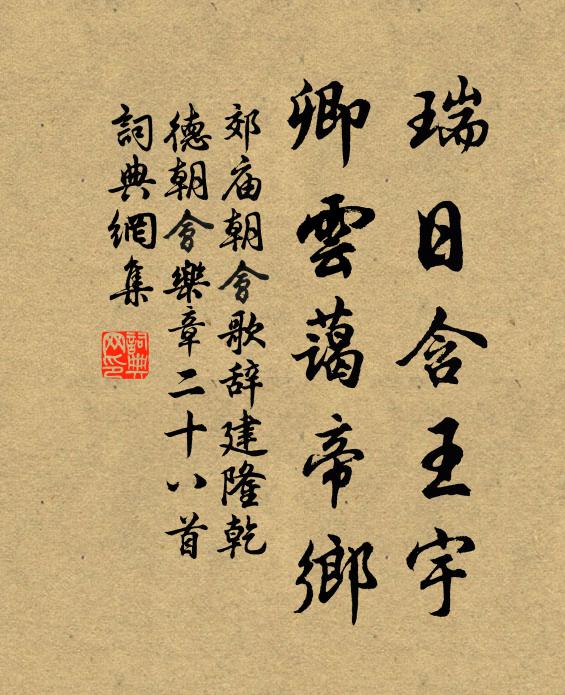 瑞日含王宇
卿雲藹帝鄉
郊庙朝會歌辞建隆乾
德朝會樂章二十八首
詞典網集
詞典
网印